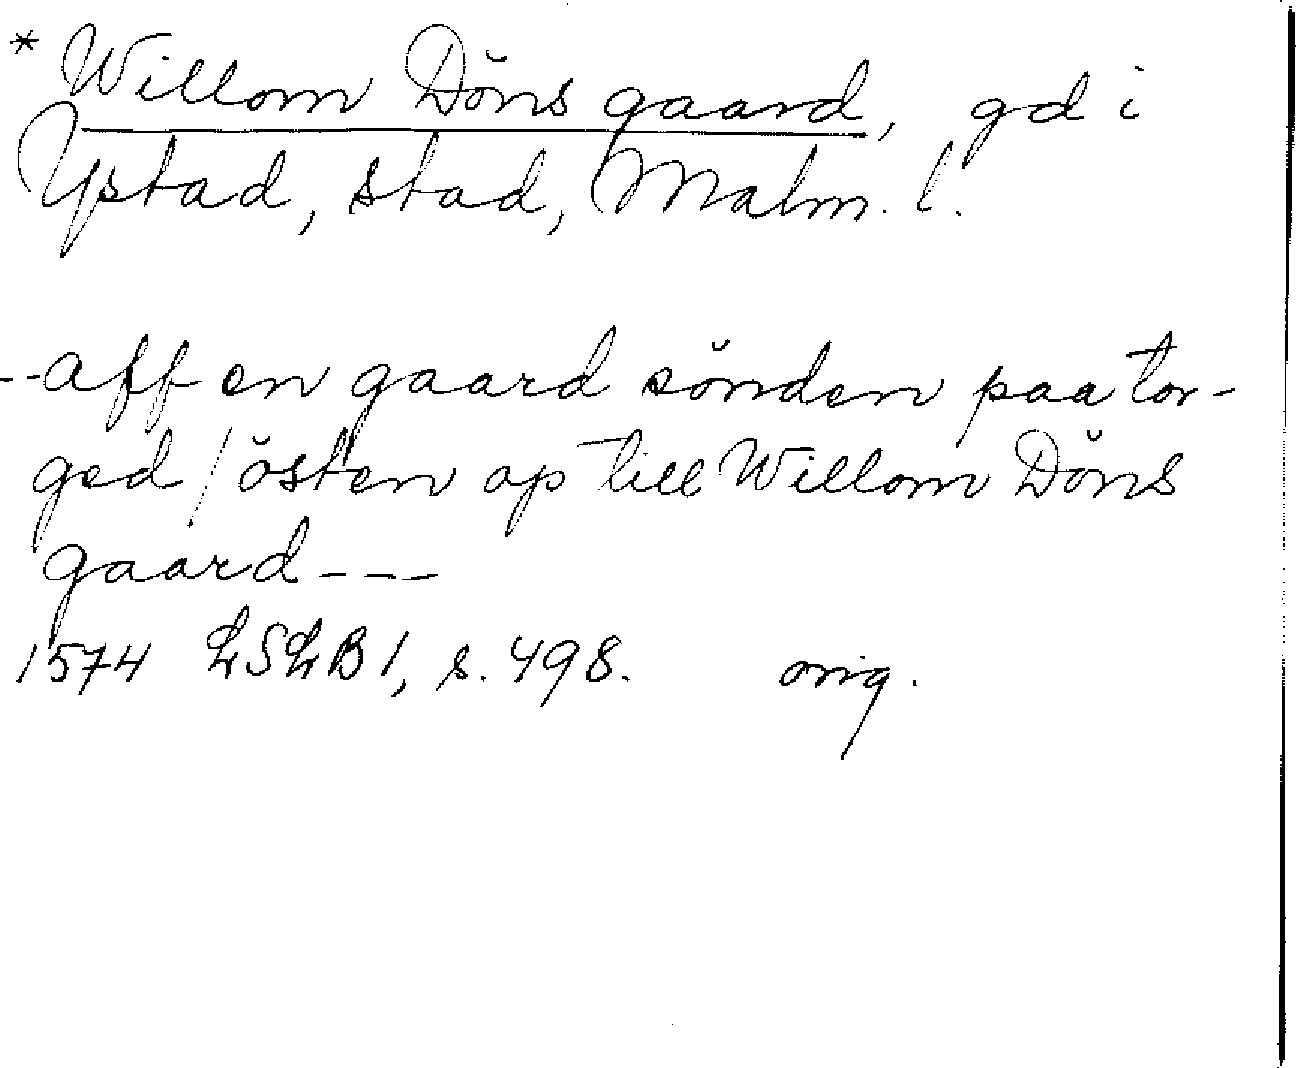 * Willom Döns gaard, gd i
Ystad, stad, Malm. l.
--aff en gaard sönden paa tor-
ged / östen op till Willom Döns
gaard---
1574 LSLB 1, s. 498. orig.